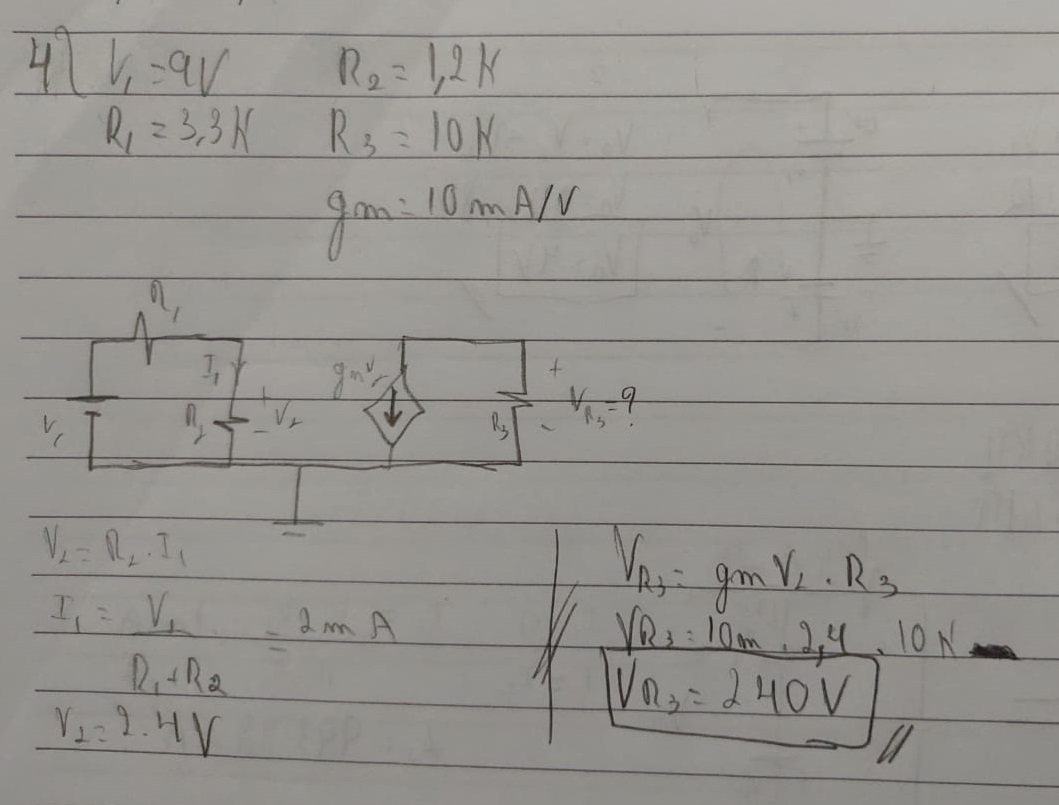 4) V₁ = 9V R₂ = 1,2K
R₁ = 3,3K R₃ = 10K
gm = 10 mA/V
R₁
I₁
gmV₂
+
+
V₁
R₂
V₂
R₃
V_R₃ = ?
-
-
V₂ = R₂ . I₁
I₁ = V₁ / R₁ + R₂ = 2mA
V₂ = 2.4V
V_R₃ = gm V₂ . R₃
V_R₃ = 10m . 2,4 . 10K
V_R₃ = 240V